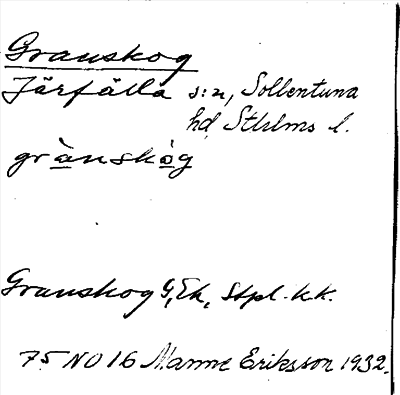 Granskog
Järfälla s:n, Sollentuna
hd, Sthlms l.
grànskòg
Granskog G, Ek, Stpl. k.k.
75 NO 16 Manne Eriksson 1932.